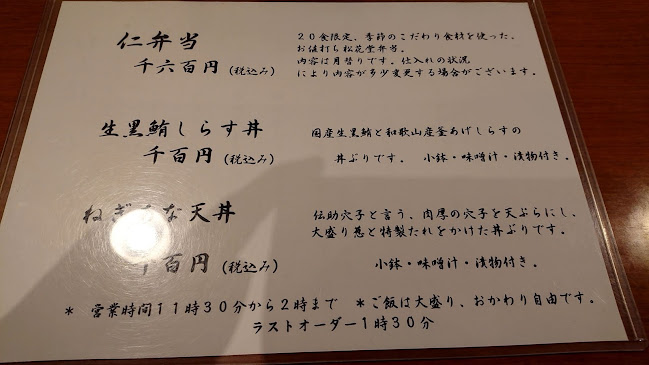 仁弁当
２０食限定、季節のこだわり食材を使った、
お値打ち松花堂弁当。
千六百円（税込み）
内容は月替りです。仕入れの状況
により内容が多少変更する場合がございます。
生黒鮪しらす丼
国産生黒鮪と和歌山産釜あげしらすの
千百円（税込み）
丼ぶりです。 小鉢・味噌汁・漬物付き。
ねぎ な天丼
伝助穴子と言う、肉厚の穴子を天ぷらにし、
大盛り葱と特製たれをかけた丼ぶりです。
千百円（税込み）
小鉢・味噌汁・漬物付き。
＊ 営業時間１１時３０分から２時まで ＊ご飯は大盛り、おかわり自由です。
ラストオーダー１時３０分